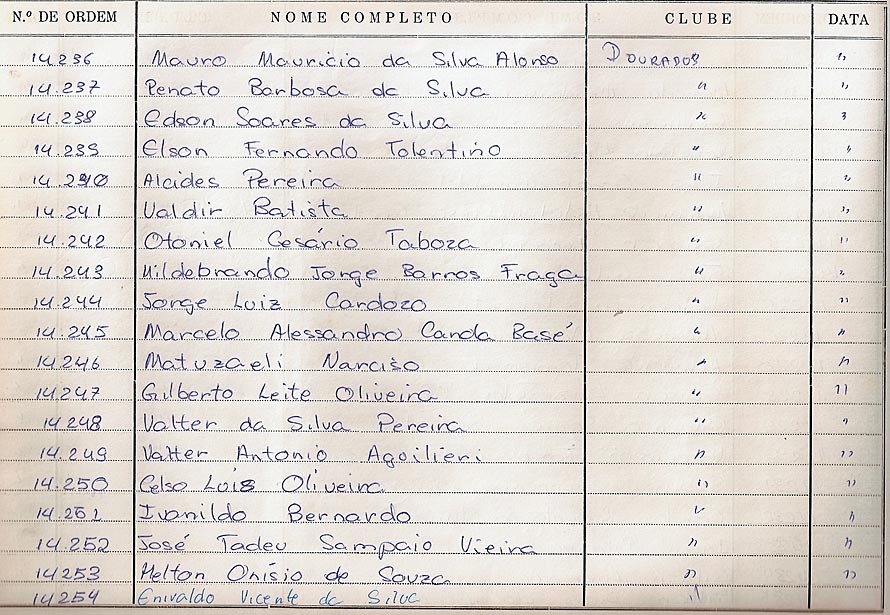 N.º DE ORDEM NOME COMPLETO CLUBE DATA
14.236 Mauro Mauricio da Silva Alonso DOURADOS "
14.237 Renato Barbosa da Silva " "
14.238 Edson Soares da Silva " "
14.239 Elson Fernando Tolentino " "
14.240 Alcides Pereira " "
14.241 Valdir Batista " "
14.242 Otoniel Cesário Taboza " "
14.243 Hildebrando Jorge Barros Fraga " "
14.244 Jorge Luiz Cardozo " "
14.245 Marcelo Alessandro Canda Basé " "
14.246 Matuzaeli Narciso " "
14.247 Gilberto Leite Oliveira " "
14.248 Valter da Silva Pereira " "
14.249 Valter Antonio Agoilieri " "
14.250 Celso Luis Oliveira " "
14.251 Ivanildo Bernardo " "
14.252 José Tadeu Sampaio Vieira " "
14.253 Helton Onísio de Souza " "
14254 Enivaldo Vicente da Silva "